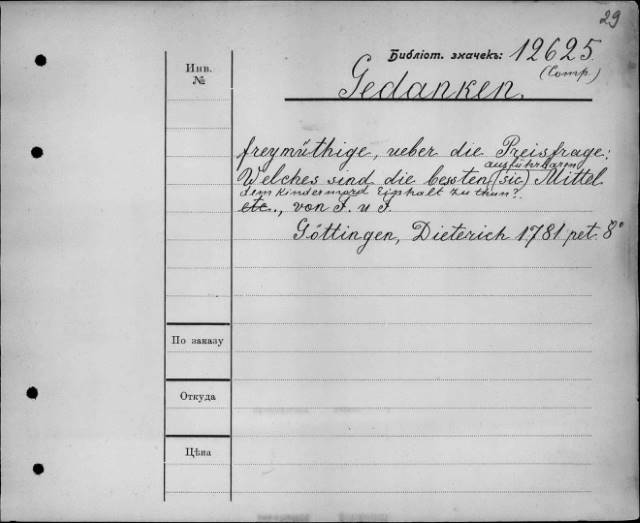 29
Библіот. значекъ: 12625
(Comp.)
Инв.
№
Gedanken,
freymüthige, ueber die Preisfrage:
ausführbaren
Welches sind die bessten (sic) Mittel
dem Kindermord Einhalt zu thun?
etc., von F. u F.
Göttingen, Dieterich 1781 pet. 8°
По заказу
Откуда
Цѣна